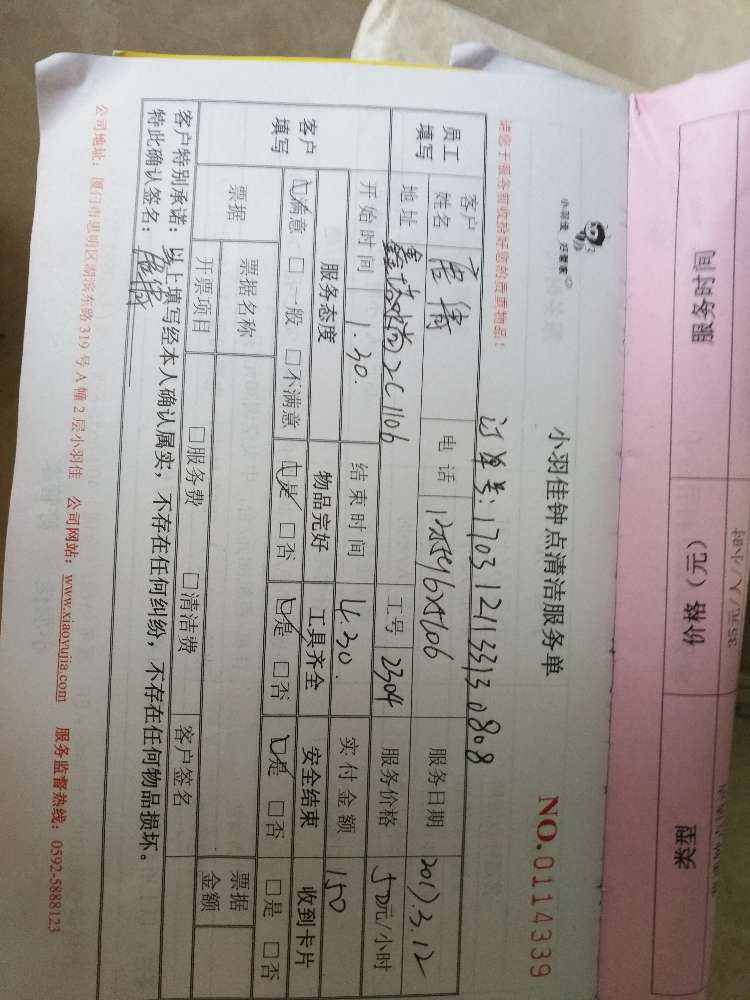 服务时间
价格（元）
类型
小羽佳 好管家
小羽佳钟点清洁服务单
NO.0114339
请您于服务前收拾好您的贵重物品！
订单号：170312113313 0808
员工填写 客户姓名 电话 服务日期 2017.3.12
地址 2C1106 工号 2304 服务价格 50元/小时
开始时间 1.30. 结束时间 4.30. 实付金额 150
客户填写 服务态度 物品完好 工具齐全 安全结束 收到卡片
☑满意 □一般 □不满意 ☑是 □否 ☑是 □否 ☑是 □否 □是 □否
票据 票据名称 票据金额
开票项目 □服务费 □清洁费 客户签名
客户特别承诺：以上填写经本人确认属实，不存在任何纠纷，不存在任何物品损坏。
特此确认签名：
公司地址：厦门市思明区湖滨东路319号A幢2层小羽佳 公司网站：www.xiaoyujia.com 服务监督热线：0592-5888123